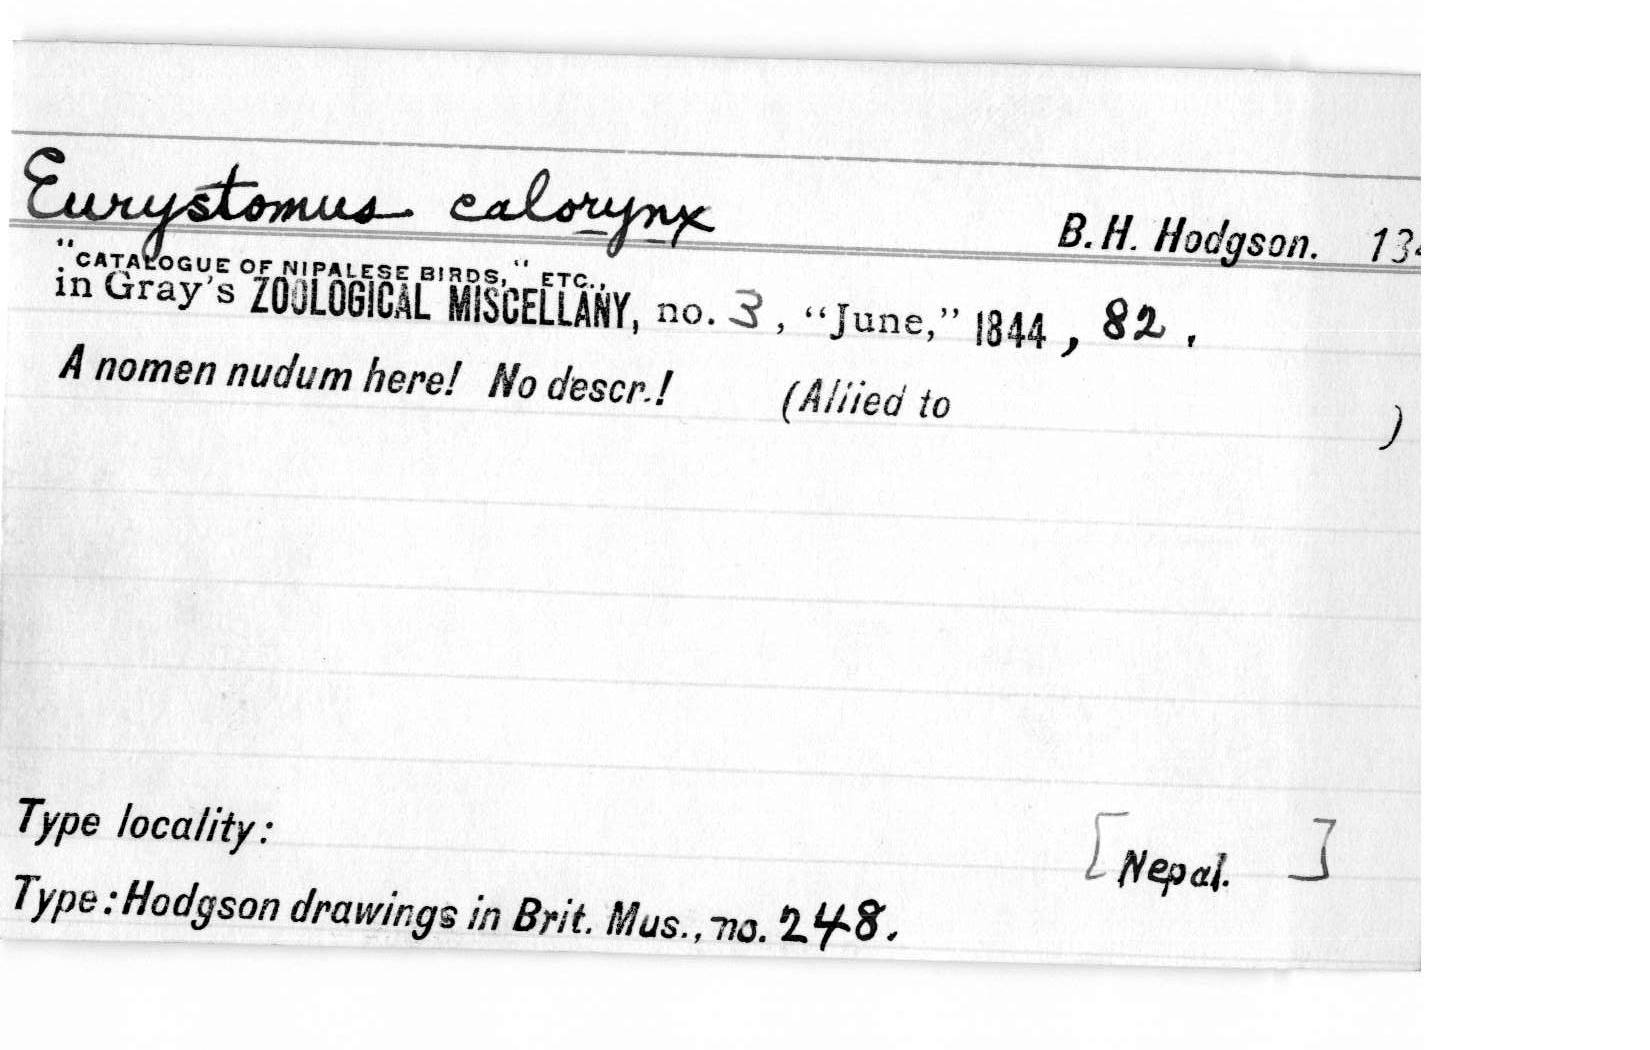 Eurystomus calorynx B. H. Hodgson.
"CATALOGUE OF NIPALESE BIRDS," ETC.,
in Gray's ZOOLOGICAL MISCELLANY, no. 3, "June," 1844, 82.
A nomen nudum here! No descr.! (Allied to )
Type locality: [Nepal. ]
Type: Hodgson drawings in Brit. Mus., no. 248.